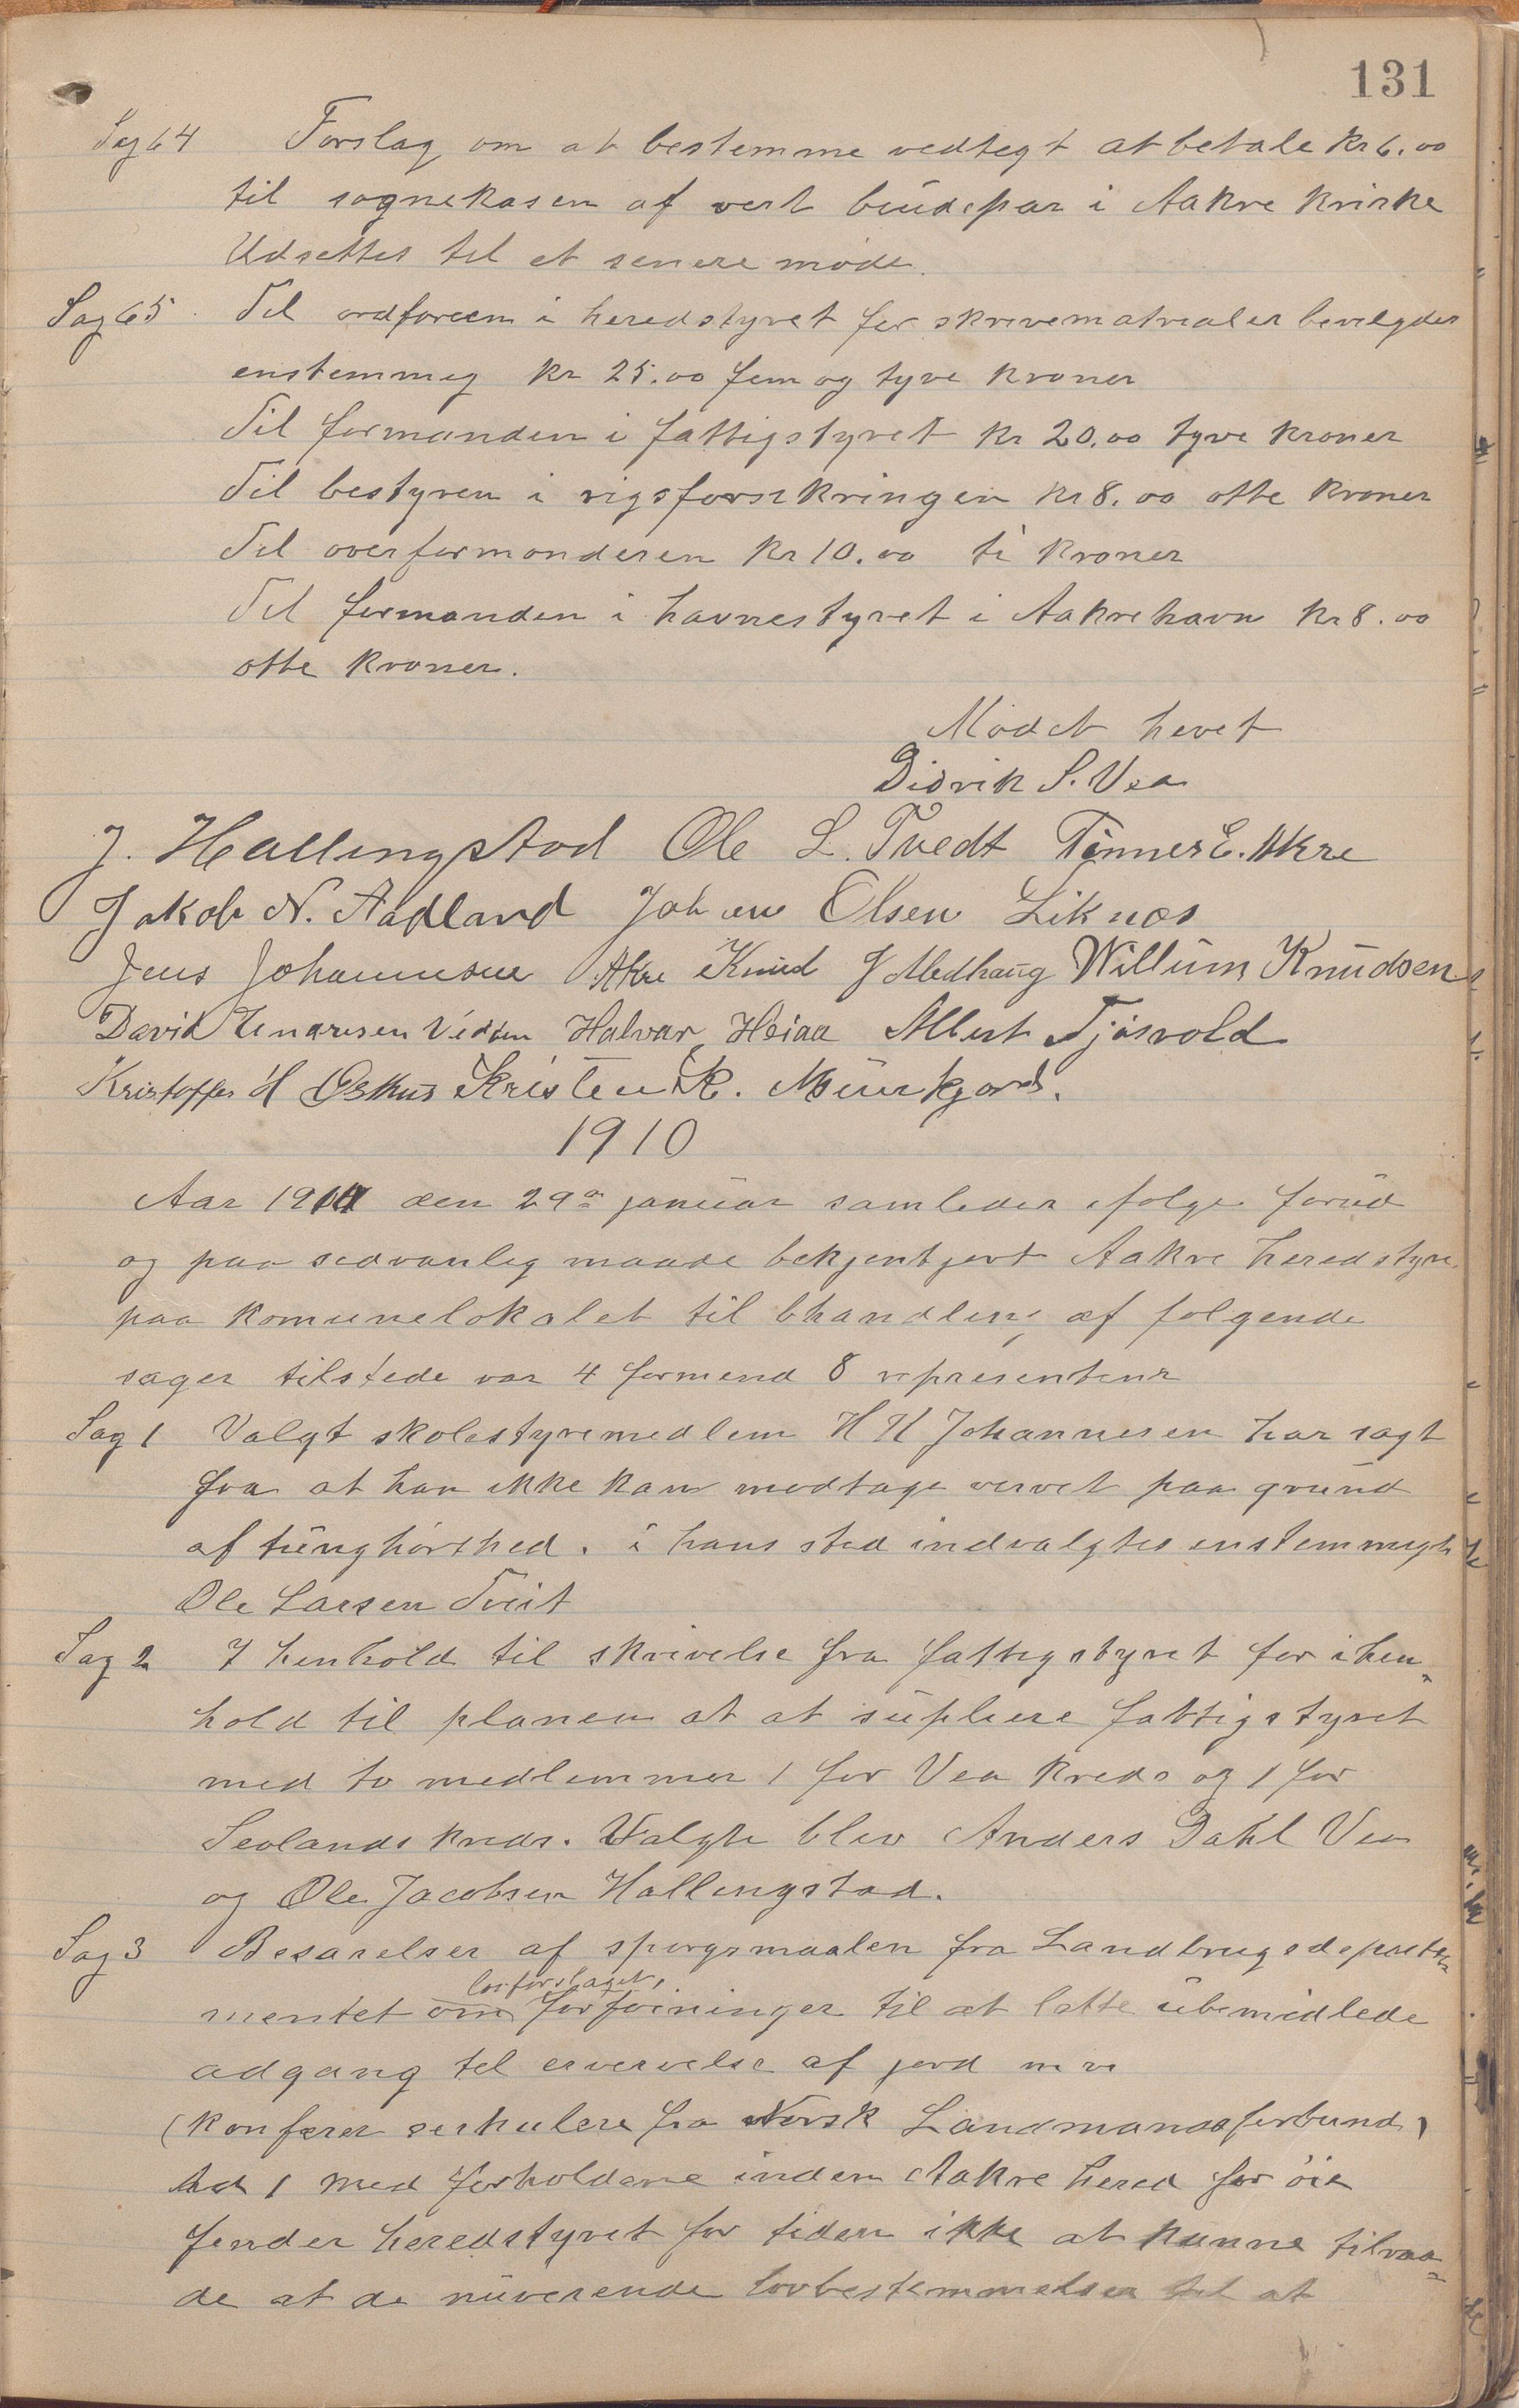 131
Sag 64 Forslag om at bestemme vedtegt at betale kr 6.00
til sognekasen af vert búdepar i Aakre kvirke
Udsettes til et senere møde.
Sag 65 Til ordføreren i heredstyret for skrivematrealer bevilgdes
enstemmig kr 25.00 fem og tyve kroner
Til formanden i fattigstyret kr 20.00 tyve kroner
Til bestyren i rigsforsikringen kr 8.00 otte kroner
Til overformonderen kr 10.00 ti kroner
Til formanden i havnestyret i Aakrehavn kr 8.00
otte kroner.
Mødet hevet
Didrik S. Vea
J. Hallingstad Ole L. Tvedt Tønnes E. Akre
Jakob N. Aadland Johan Olsen Liknes
Jens Johannesen Akre Knud J Medhaug Willum Knudsen
David Enaresen Vedøen Halvar Heiaa Albert Tjøsvold
Kristoffer H Østhus Kristen K. Munkjord.
1910
Aar 1910 den 29de januar samledes ifølge forud
og paa sedvanlig maade bekjentjort Aakre heredstyre
paa komunelokalet til bhandling af følgende
sager tilstede var 4 formend 8 representeur
Sag 1 Valgt skolestyremedlem H H Johannesen har sagt
fra at han ikke kan modtage vervet paa grund
af tunghørthed. i hans sted indvalgtes enstemmigh
Ole Larsen Tveit
Sag 2 I henhold til skrivelse fra fattigstyret for i hen-
hold til planen at at supleere fattigstyret
med to medlemmer 1 for Vea kreds og 1 for
Sevlands kreds. Valgte blev Anders Dahl Vea
og Ole Jacobsen Hallingstad.
Sag 3 Besarelser af spørgsmaalen fra Landbrugsdeparte-
lovforslaget,
mentet om forføininger til at lette ubemidlede
adgang til ervervelse af jord m v
(konferer serkulere fra Norsk Landmandsforbund)
Ad 1 Med forholdene inden Aakre hered for øie
finder heredstyret for tiden ikke at kunne tilraa-
de at de nuverende lovbestemmelser til at